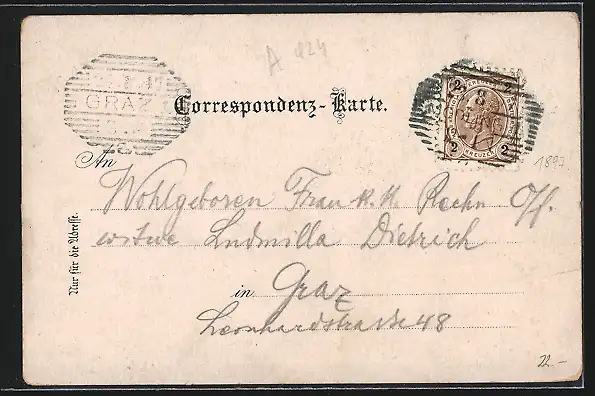 A 224
GRAZ
Correspondenz-Karte.
2 2
KREUZER
2 2
1897
An
Wohlgeboren Frau K. K. Rechn Off.
witwe Ludmilla Dietrich
in Graz
Leonhardstrasse 48
Nur für die Adresse.
22.-